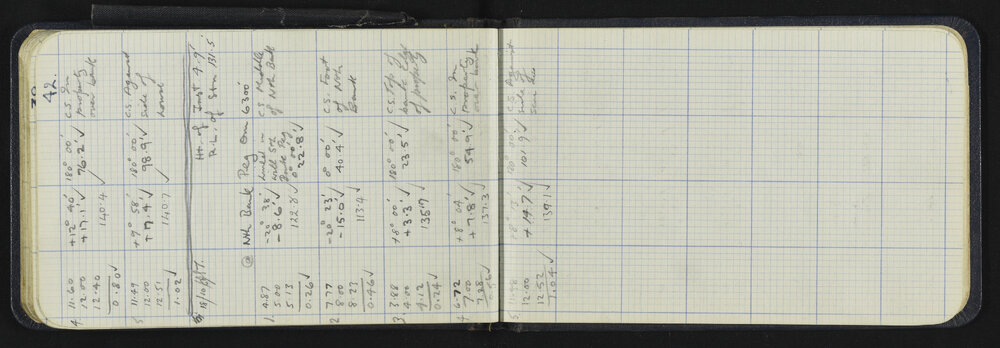 42.
4. 11.60 +12° 40' 180° 00' C.S. In
12.00 +17.1'✓ 76.2'✓ property
12.40 140.4 over bank
0.80✓
5 11.49 +9° 58' 180° 00' C.S. Against
12.00 +17.4'✓ 98.9'✓ side of
12.51 140.7 house
1.02✓
18/10/47. Ht. of Inst 4.9'
R.L. of Stn 131.5'
@ Nth Bank Peg on 6300'
1. 4.87 -20° 38' C.S Middle
5.00 -8.6'✓ of Nth Bank
5.13 122.8✓ Bank Peg
0° 00' 00"
0.26✓ 22.8'✓
2 7.77 -20° 23' 0° 00' C.S. Foot
8.00 -15.0'✓ 40.4'✓ of Nth
8.23 113.4✓ Bank
0.46✓
3 3.88 +8° 00' 180° 00' C.S. Top of
4.00 +3.3'✓ 23.5'✓ bank edge
4.12 135.7 of property
0.24✓
4 6.72 +8° 04' 180° 00' C.S. In
7.00 +7.8'✓ 54.9'✓ property
7.28 137.3✓ over bank
0.56✓
5 11.48 +8° 13' 180° 00' C.S. Against
12.00 +14.7'✓ 101.9'✓ side of
12.52 139.1✓
1.04✓